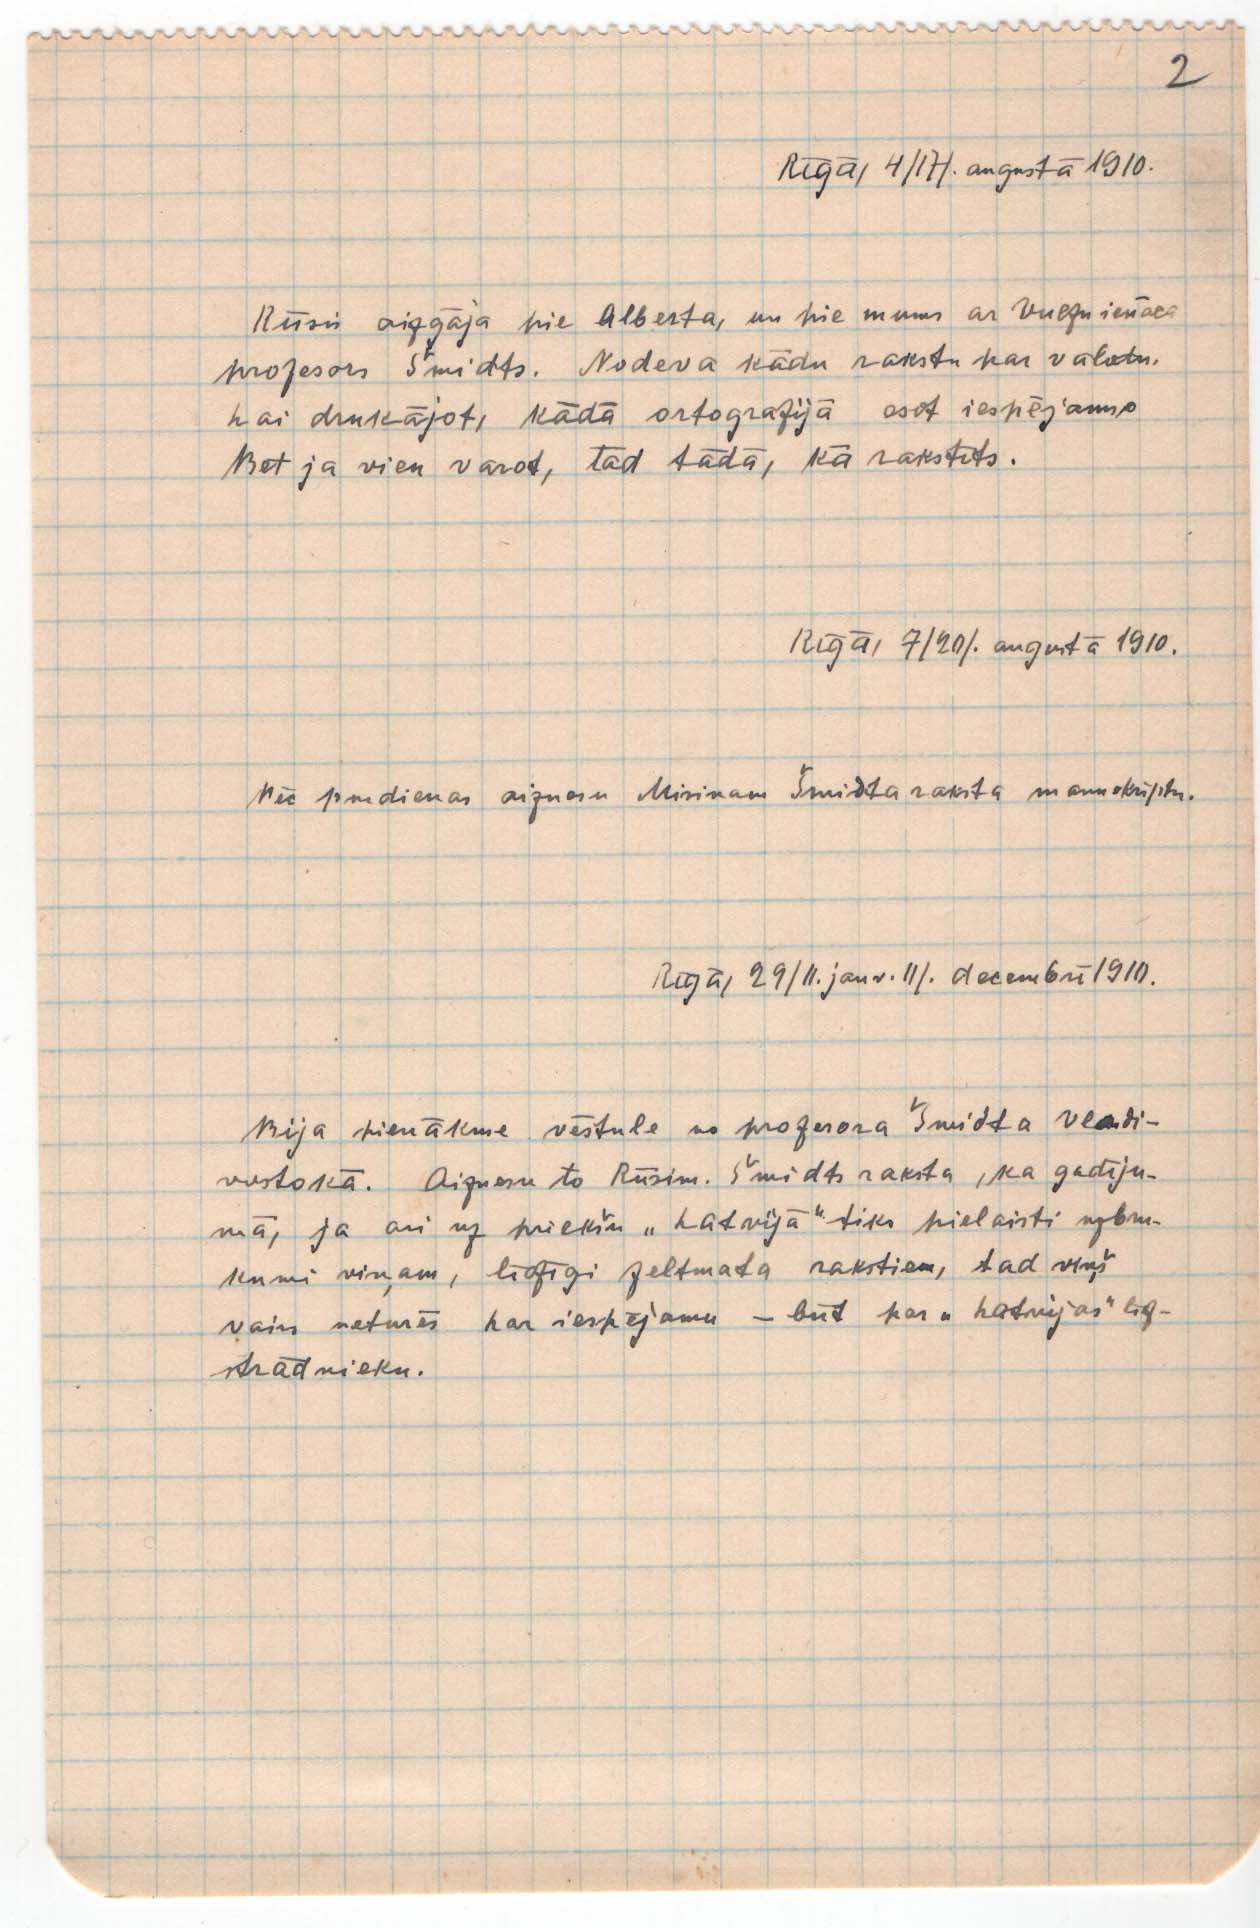 2
Rīgā, 4/17/. augustā 1910.
Rūsiņ aizgāja pie Alberta, un pie mums ar ienāca
profesors Šmidts. Nodeva kādu rakstu par valodu.
Lai drukājot, kādā ortografijā esot iespējams,
Bet ja vien varot, tad tādā, kā rakstīts.
Rīgā, 7/20/. augustā 1910.
Pēc pusdienas aiznesu Misiņam Šmidta raksta manuskriptu.
Rīgā, 29/11. janv. 11/. decembrī 1910.
Bija pienākuse vēstule no profesora Šmidta Vladi-
vostokā. Aiznesu to Rūsim. Šmidts raksta, ka gadīju-
mā, ja ari uz priekšu „Latvijā" tiks pielaisti uzbru-
kumi viņam, līdzīgi Zeltmata rakstiem, tad viņš
vairs neturēs par iespējamu – būt par „Latvijas" līdz-
strādnieku.